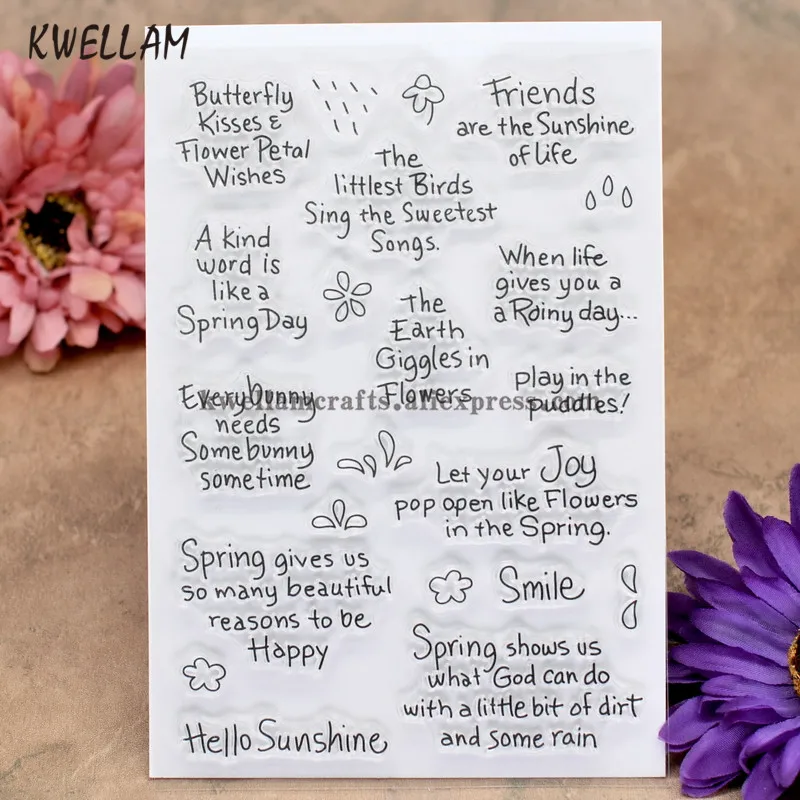 KWELLAM
Butterfly
Kisses &
Flower Petal
Wishes
Friends
are the Sunshine
of life
The
littlest Birds
Sing the Sweetest
Songs.
A kind
word is
like a
Spring Day
When life
gives you a
a Rainy day...
the
Earth
Giggles in
Flowers
play in the
puddles!
Everybunny
needs
Somebunny
sometime
kwellamcrafts.aliexpress.com
Let your Joy
pop open like Flowers
in the Spring.
Spring gives us
so many beautiful
reasons to be
Happy
Smile
Spring shows us
what God can do
with a little bit of dirt
and some rain
Hello Sunshine